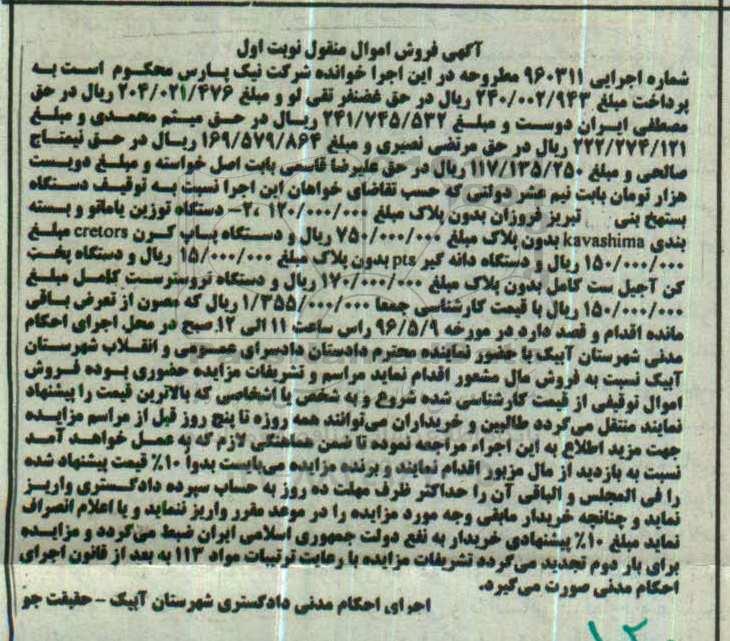 آگهی فروش اموال منقول نوبت اول
شماره اجرایی ۹۶۰۳۱۱ مطروحه در این اجرا خوانده شرکت نیک پارس محکوم است به
پرداخت مبلغ ۲۴۰/۰۰۲/۹۴۳ ریال در حق غضنفر تقی لو و مبلغ ۲۰۴/۰۲۱/۴۷۶ ریال در حق
مصطفی ایران دوست و مبلغ ۲۴۱/۷۴۵/۵۳۲ ریال در حق میثم محمدی و مبلغ
۲۲۲/۲۷۴/۱۲۱ ریال در حق مرتضی نصیری و مبلغ ۱۶۹/۵۷۹/۸۶۴ ریال در حق نیمتاج
صالحی و مبلغ ۱۱۷/۱۳۵/۲۵۰ ریال در حق علیرضا قاسمی بابت اصل خواسته و مبلغ دویست
هزار تومان بابت نیم عشر دولتی که حسب تقاضای خواهان این اجرا نسبت به توقیف دستگاه
بستهخ بنی تبریز فروزان بدون پلاک مبلغ ۱۲۰/۰۰۰/۰۰۰ ،۲- دستگاه توزین یاماتو و بسته
بندی kavashima بدون پلاک مبلغ ۷۵۰/۰۰۰/۰۰۰ ریال و دستگاه پاپ کرن cretors مبلغ
۱۵۰/۰۰۰/۰۰۰ ریال و دستگاه دانه گیر pts بدون پلاک مبلغ ۱۵/۰۰۰/۰۰۰ ریال و دستگاه پخت
کن آجیل ست کامل بدون پلاک مبلغ ۱۷۰/۰۰۰/۰۰۰ ریال و دستگاه تروسترست کامل مبلغ
۱۵۰/۰۰۰/۰۰۰ ریال با قیمت کارشناسی جمعا ۱/۳۵۵/۰۰۰/۰۰۰ ریال که مصون از تعرض باقی
مانده اقدام و قصد دارد در مورخه ۹۶/۵/۹ راس ساعت ۱۱ الی ۱۲ صبح در محل اجرای احکام
مدنی شهرستان آبیک با حضور نماینده محترم دادستان دادسرای عمومی و انقلاب شهرستان
آبیک نسبت به فروش مال مشعور اقدام نماید مراسم و تشریفات مزایده حضوری بوده فروش
اموال توقیفی از قیمت کارشناسی شده شروع و به شخص یا اشخاصی که بالاترین قیمت را پیشنهاد
نمایند منتقل می گردد طالبین و خریداران می‌توانند همه روزه تا پنج روز قبل از مراسم مزایده
جهت مزید اطلاع به این اجراء مراجعه نموده تا ضمن هماهنگی لازم که به عمل خواهد آمد
نسبت به بازدید از مال مزبور اقدام نمایند و برنده مزایده می‌بایست بدوا ۱۰٪ قیمت پیشنهاد شده
را فی المجلس و الباقی آن را حداکثر ظرف مهلت ده روز به حساب سپرده دادگستری واریز
نماید و چنانچه خریدار مابقی وجه مورد مزایده را در موعد مقرر واریز ننماید و یا اعلام انصراف
نماید مبلغ ۱۰٪ پیشنهادی خریدار به نفع دولت جمهوری اسلامی ایران ضبط می‌گردد و مزایده
برای بار دوم تجدید می‌گردد تشریفات مزایده با رعایت ترتیبات مواد ۱۱۳ به بعد از قانون اجرای
احکام مدنی صورت می‌گیرد.
اجرای احکام مدنی دادگستری شهرستان آبیک – حقیقت جو